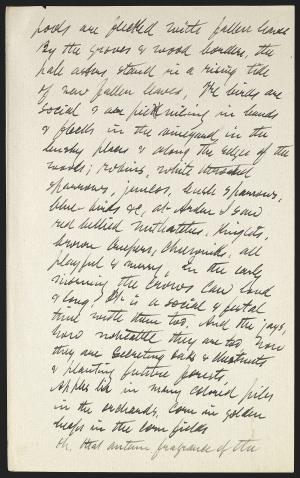 pools are flecked with fallen leaves
By the groves & wood borders, the
pale asters stand in a rising tide
of new fallen leaves, The birds are
social & are picnicing in bands
& flocks in the vineyard, in the
bushy places & along the edges of the
woods; robins, white throated
sparrows, juncos, bush sparrows,
blue-birds &c, at Arden I saw
red bellied nuthatches, kinglets,
brown creepers, chickadees, all
playful & merry, in the early
morning the crows caw loud
& long. It is a social & festal
time with them too. And the jays,
how noticeable they are too now
they are secreting oaks & chestnuts
& planting future forests.
Apples lie in many colored piles
in the orchards. Corn in golden
heaps in the corn fields
Oh, that autumn fragrance of the